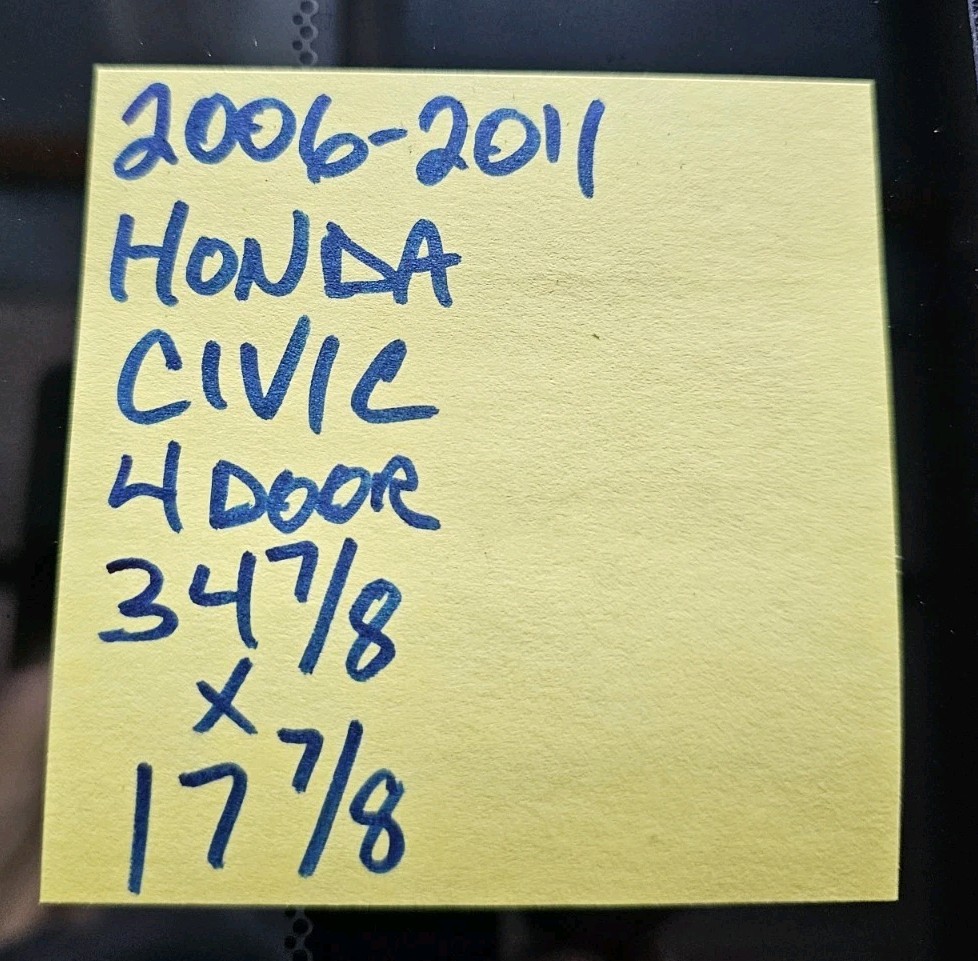 2006-2011
HONDA
CIVIC
4 DOOR
34 7/8
X
17 7/8